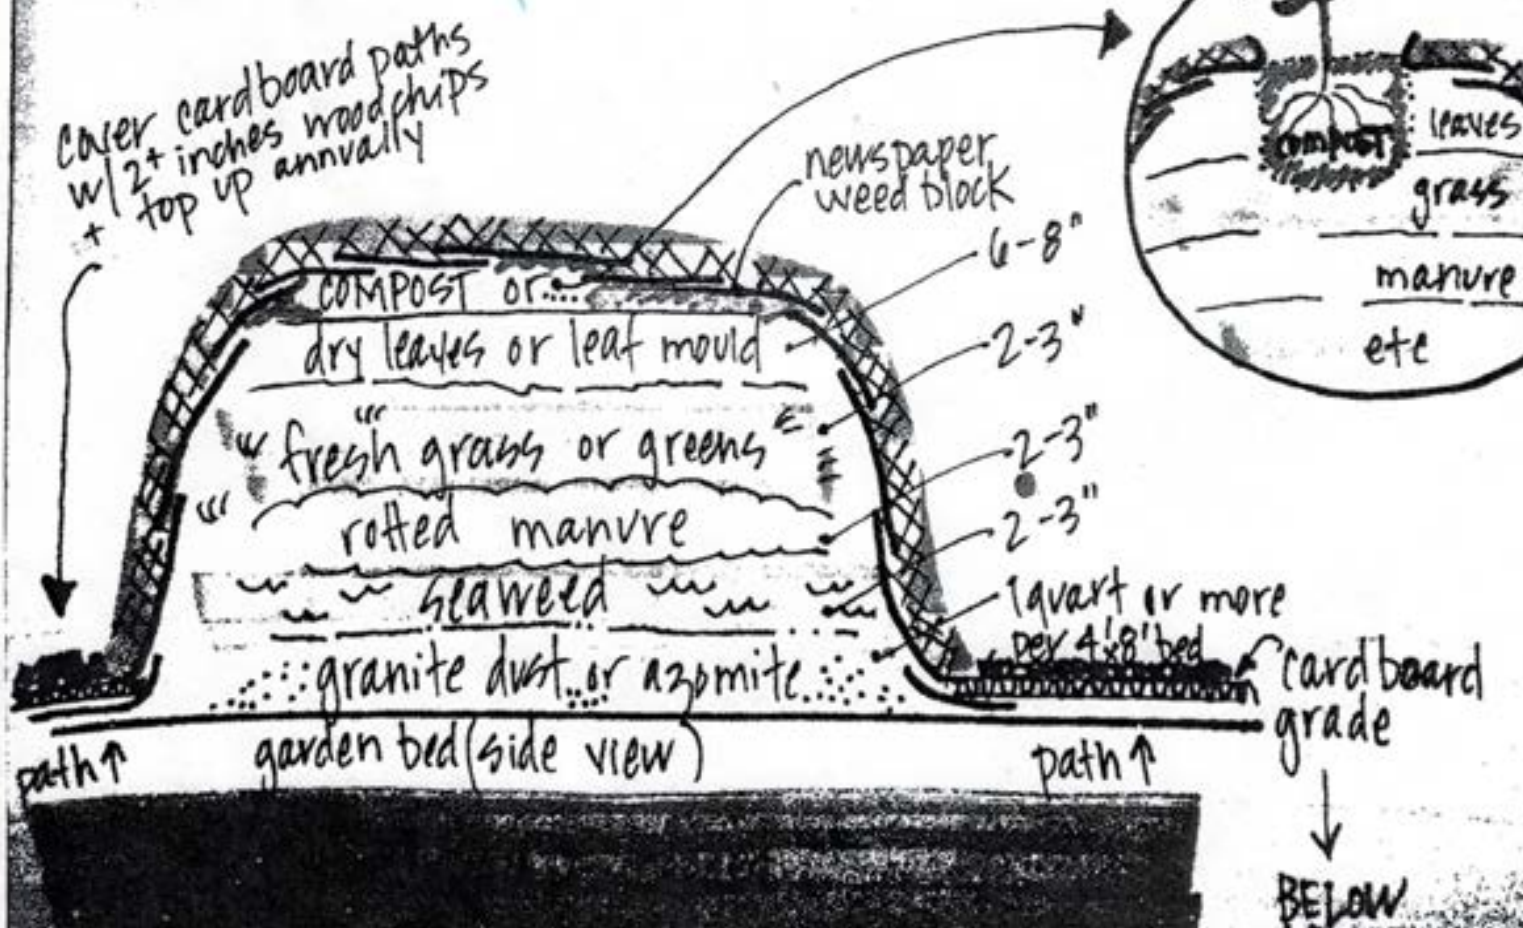 cover cardboard paths
w/ 2+ inches woodchips
+ top up annually
newspaper
weed block
COMPOST or
dry leaves or leaf mould
fresh grass or greens
rotted manure
seaweed
granite dust or azomite
6-8"
2-3"
2-3"
2-3"
1 quart or more
per 4'x8' bed
cardboard
grade
path↑
garden bed (side view)
path↑
BELOW
compost
leaves
grass
manure
etc